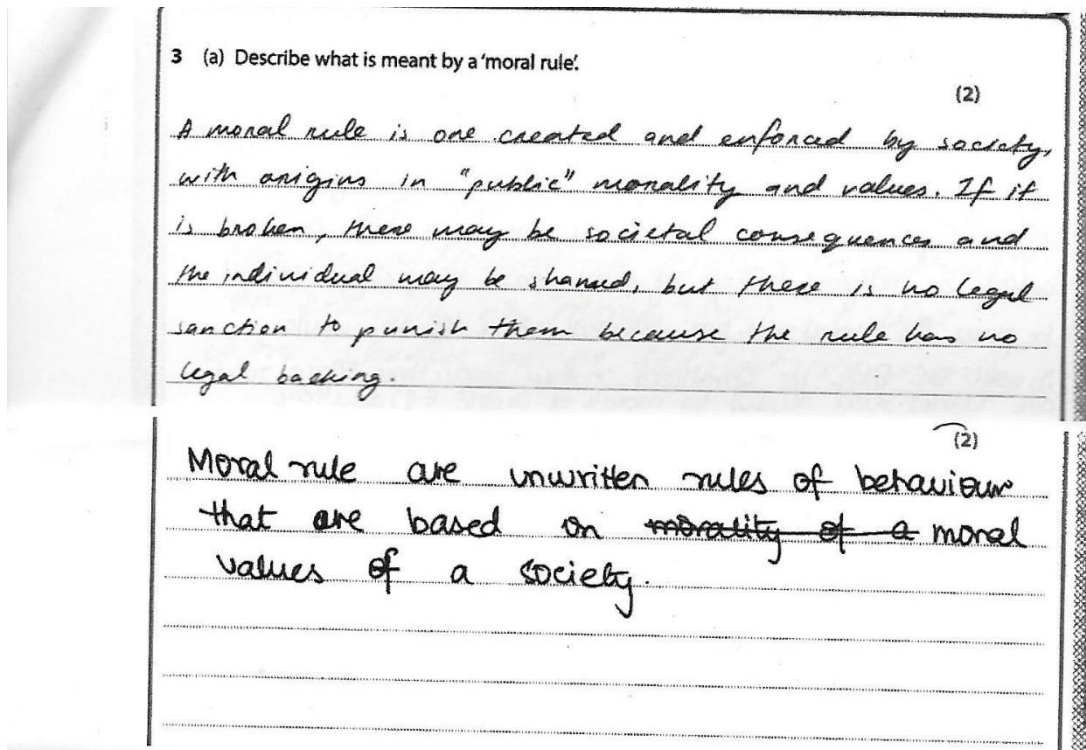 3 (a) Describe what is meant by a ‘moral rule’.
(2)
A moral rule is one created and enforced by society,
with origins in "public" morality and values. If it
is broken, there may be societal consequences and
the individual may be shamed, but there is no legal
sanction to punish them because the rule has no
legal backing.
(2)
Moral rule are unwritten rules of behaviour
that are based on morality of a moral
values of a society.